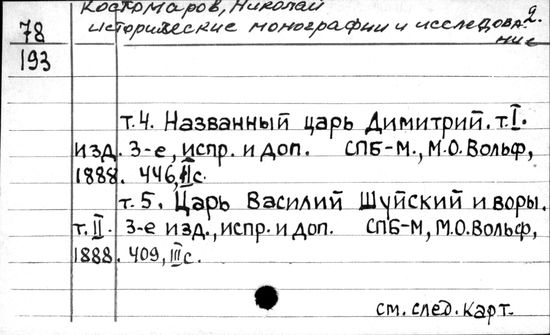 Костомаров, Николай
2.
78 исторические монографии и исследова-
ние
193
т.4. Названный царь Димитрий. т.I.
изд. 3-е, испр. и доп. СПБ-М., М.О. Вольф,
1888. 446, II с.
т.5. Царь Василий Шуйский и воры.
т. II. 3-е изд., испр. и доп. СПБ-М, М.О. Вольф,
1888. 409, III с.
см. след. карт.